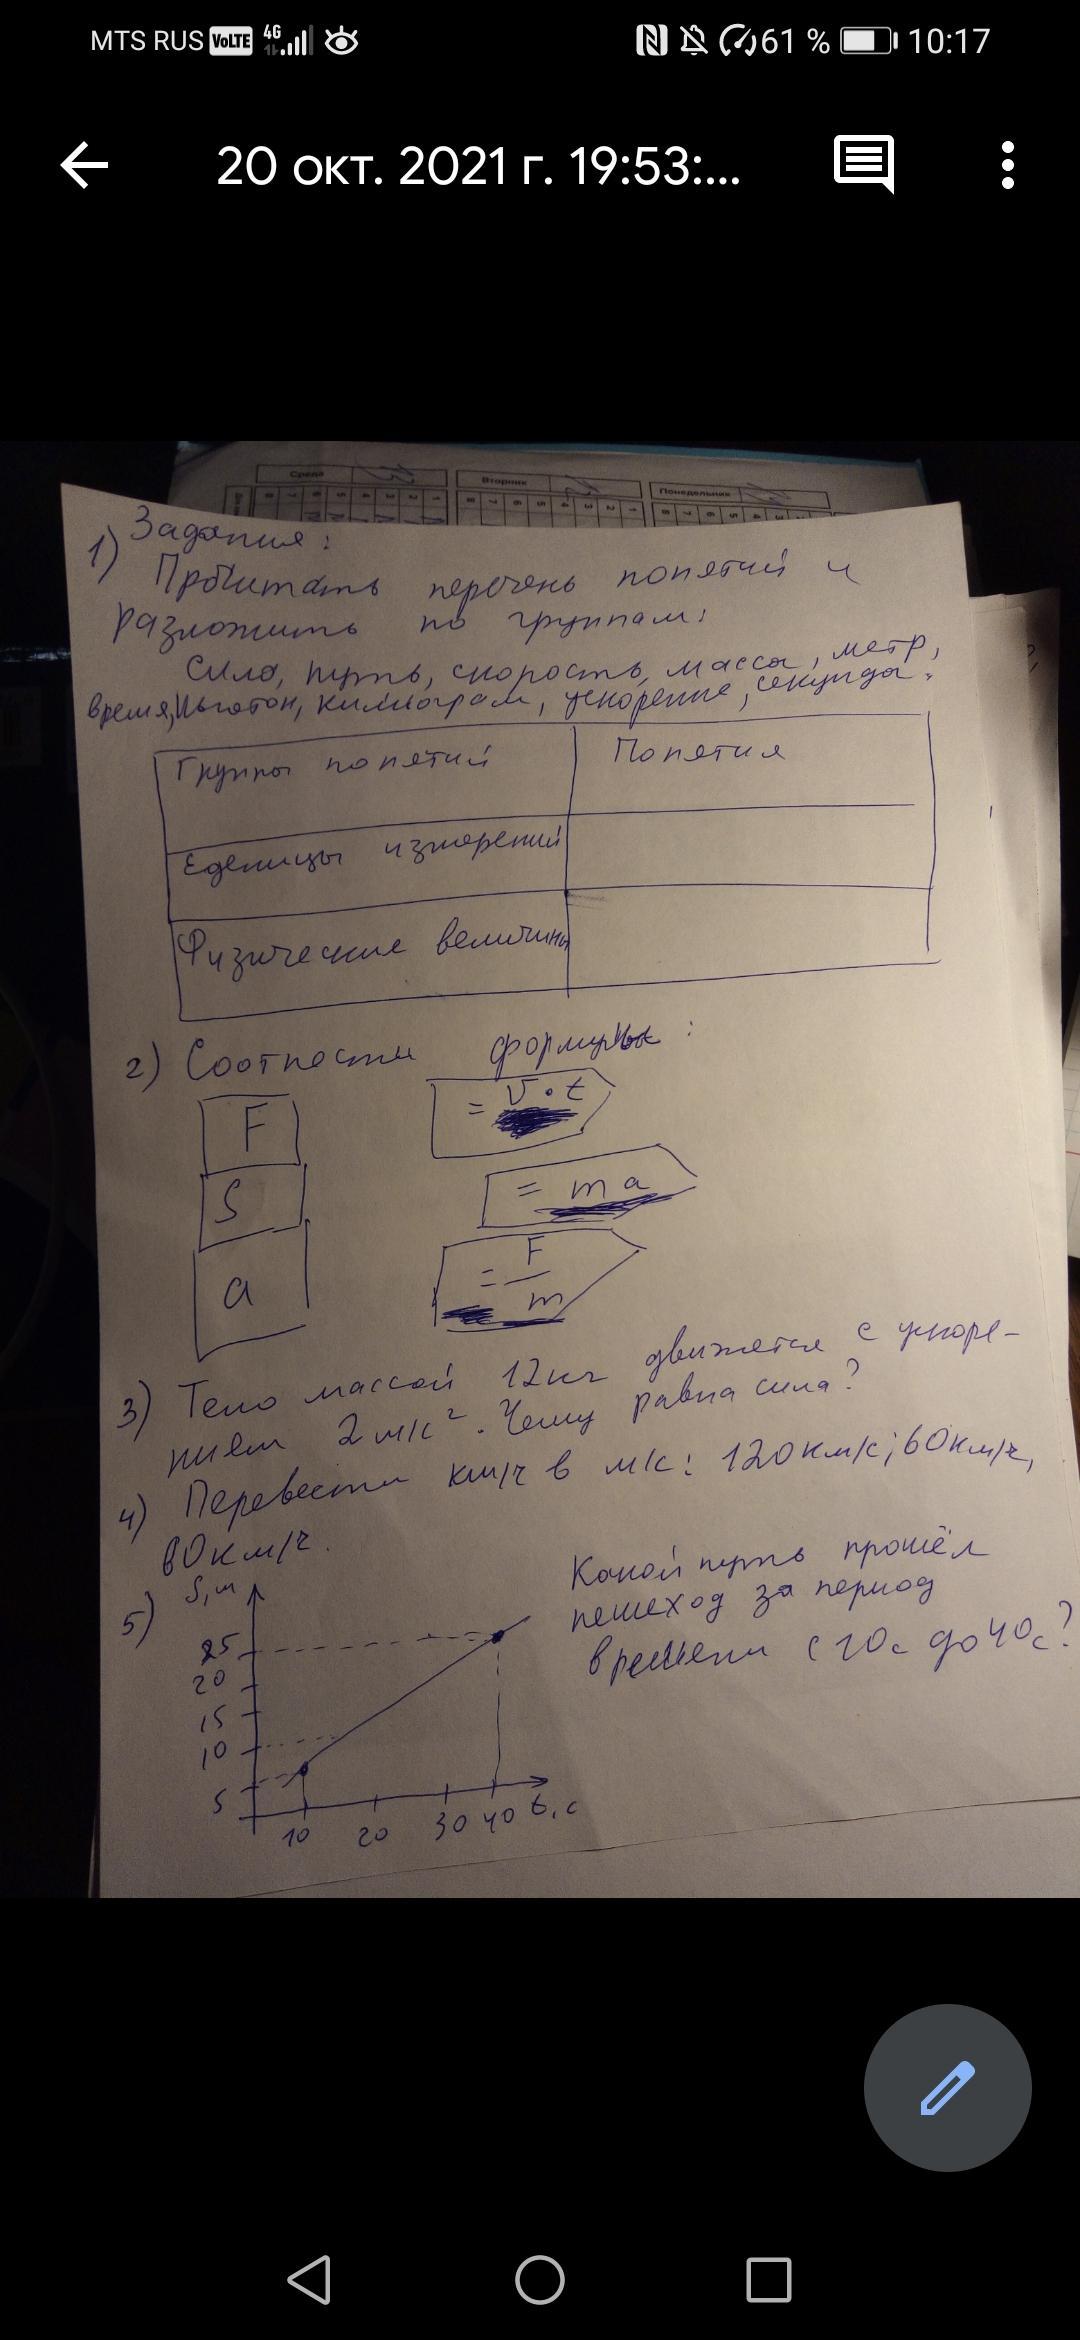 MTS RUS VoLTE 4G 61 % 10:17
20 окт. 2021 г. 19:53:...
Среда Вторник Понедельник
Задания:
1) Прочитать перечень понятий и
разложить по группам:
Сила, путь, скорость, масса, метр,
время, Ньютон, килограм, ускорение, секунда.
Группы понятий Понятия
Еденицы измерений
Физические величины
2) Соотнести формулы:
F = V·t
S = m a
a = F/m
3) Тело массой 12кг движется с ускоре-
нием 2м/с². Чему равна сила?
4) Перевести км/ч в м/с: 120км/с; 60км/ч,
80км/ч.
5) S, м
25
20
15
10
5
10 20 30 40 t, с
Какой путь прошёл
пешеход за период
времени с 20с до 40с?